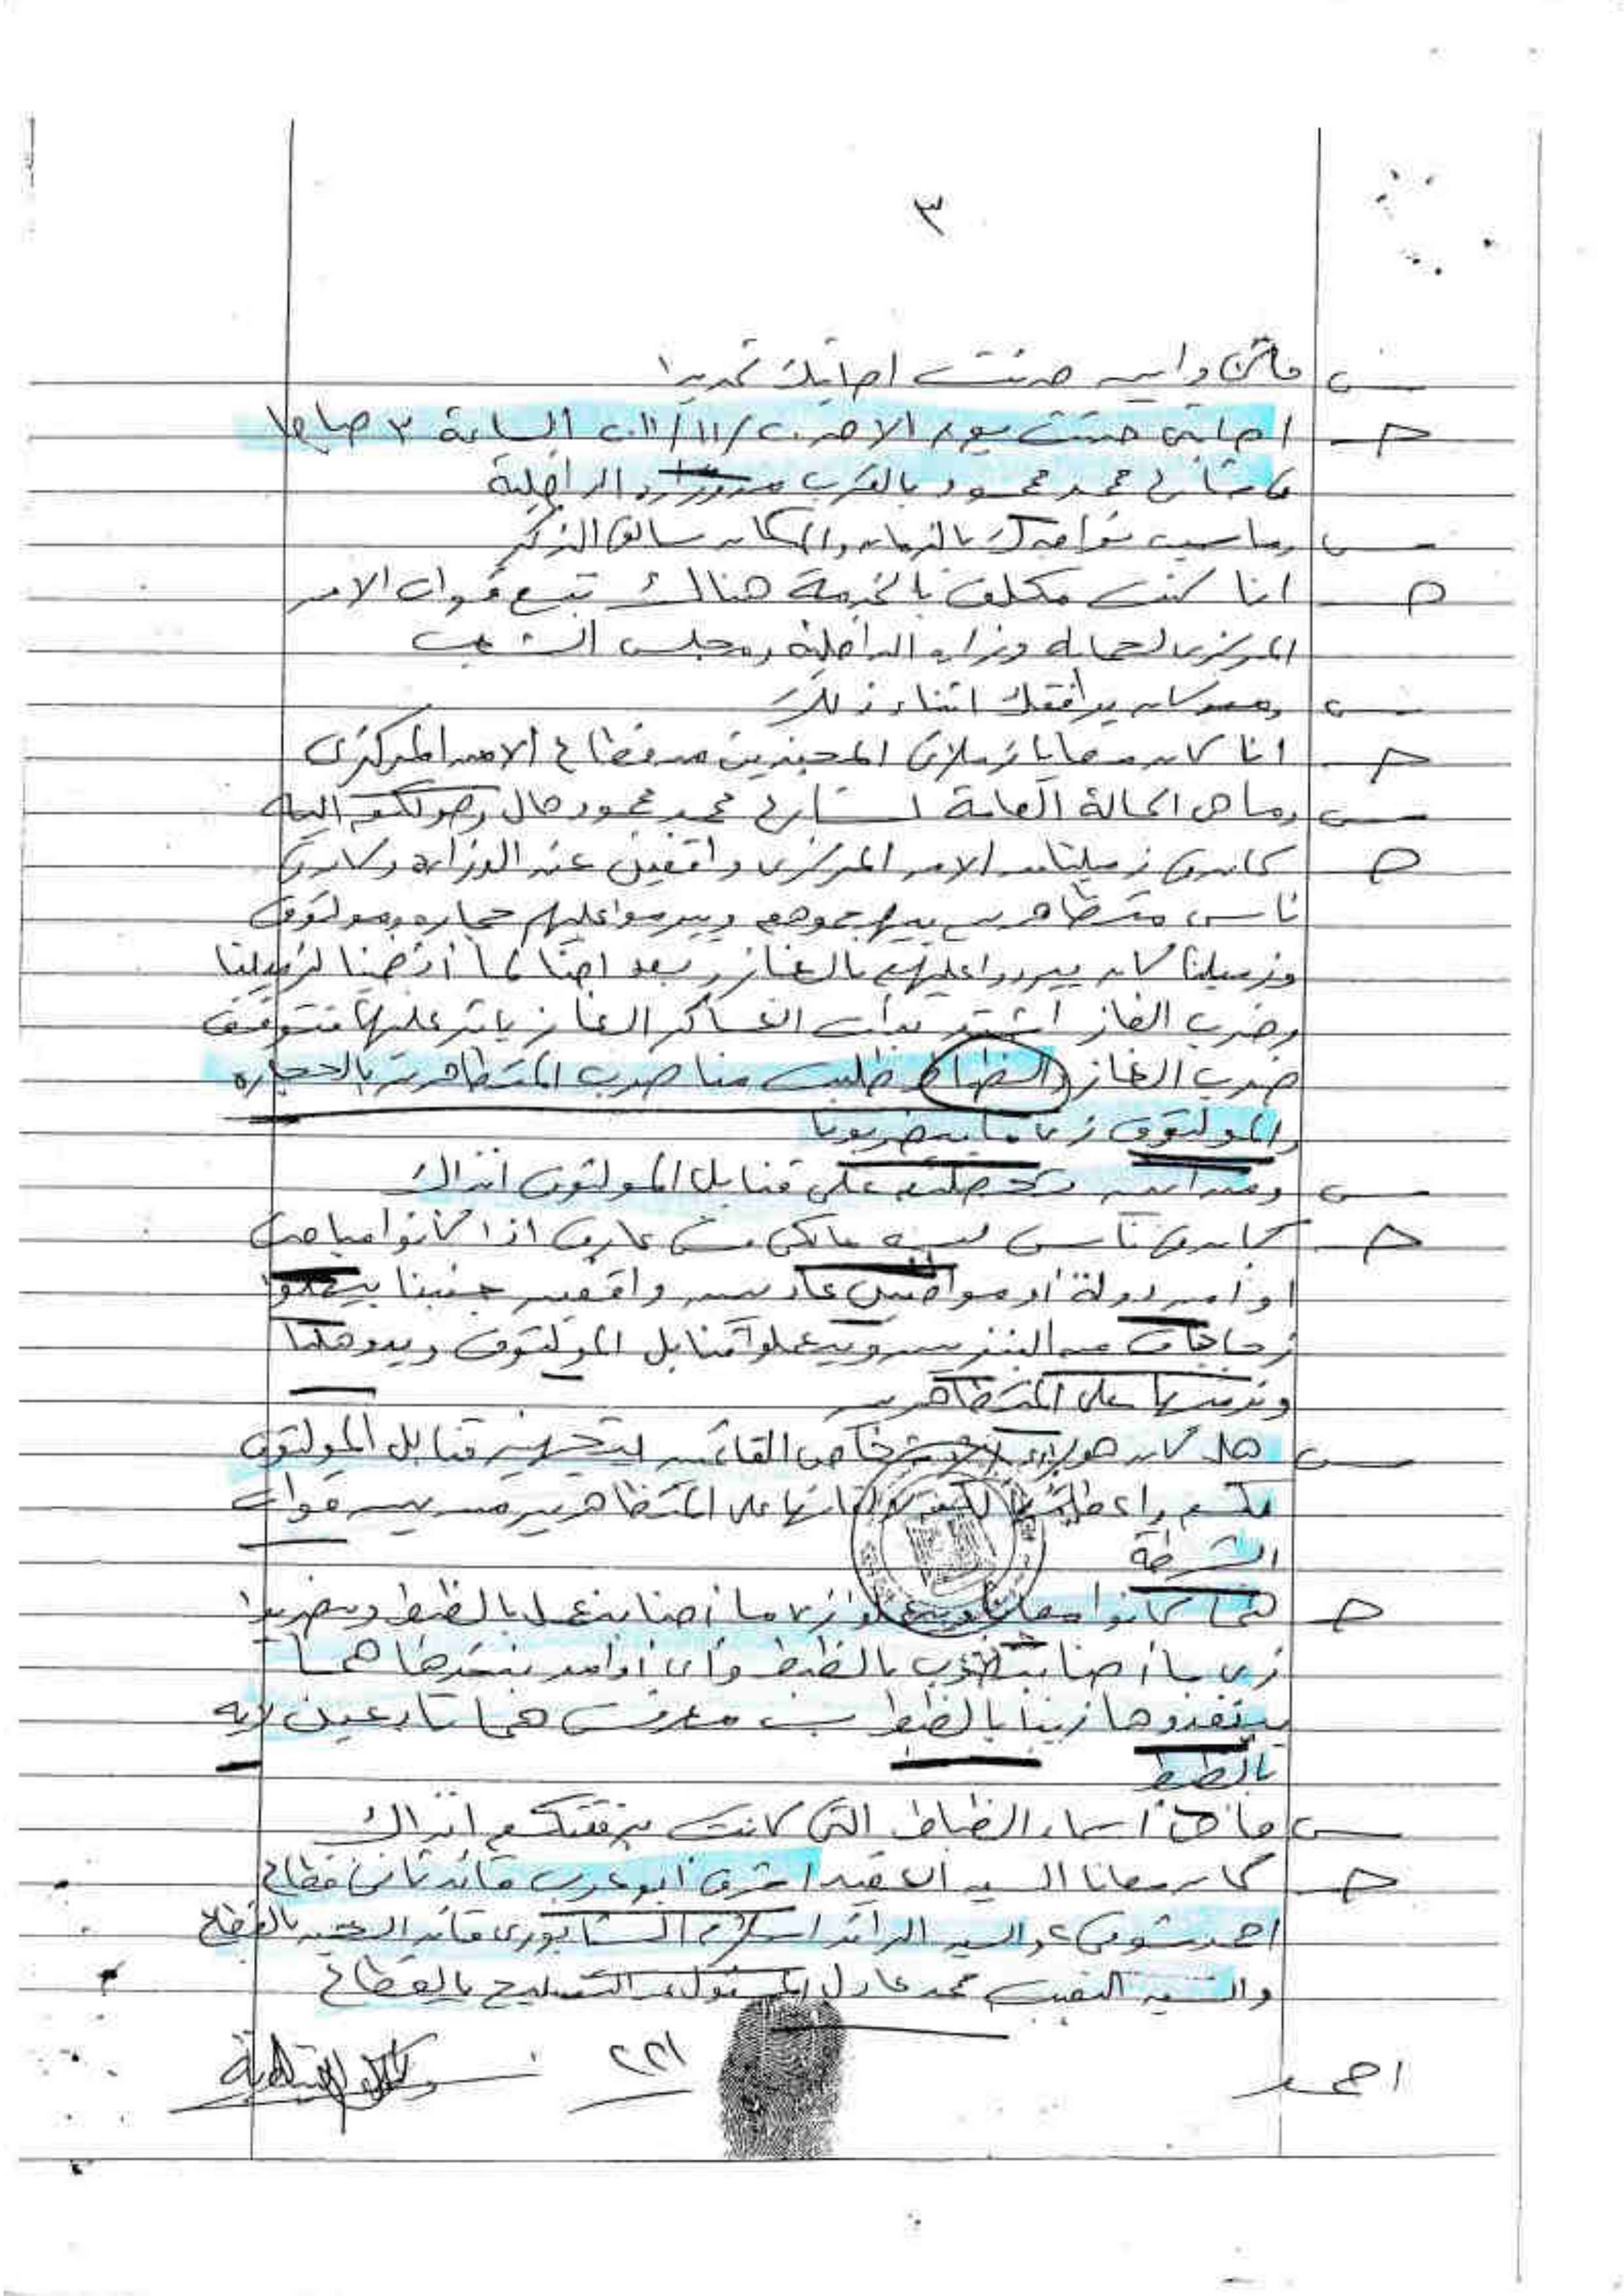 ٣
س متى واين حدثت اصابتك تحديدا
ج اصابتى حدثت يوم الاحد ٢٠/١١/٢٠١١ الساعة ٣ صباحا
فى شارع محمد محمود بالقرب من وزارة الداخلية
س وما سبب تواجدك بالزمان والمكان سالف الذكر
ج انا كنت مكلف بالخدمة هناك تبع قوات الامن
المركزى لحماية وزارة الداخلية ومجلس الشعب
س ومن كان يرافقك اثناء ذلك
ج انا كان معايا زملائى المجندين من قطاع الامن المركزى
س وما هى الحالة العامة لشارع محمد محمود حال وصولكم اليه
ج كان فى زميلنا من الامن المركزى واقفين عند الوزارة وكان فى
ناس متظاهرين بيهاجموهم وبيرموا عليهم حجارة ومولتوف
وزميلنا كان بيردوا عليهم بالغاز وبعد احنا لما أنضمينا لزميلنا
وضرب الغاز اشتد بدأت العساكر الغاز ياثر عليها فتوقف
ضرب الغاز والظباط طلبت منا ضرب المتظاهرين بالحجارة
والمولتوف زى ما بيضربونا
س ومن اين تحصلتم على قنابل المولتوف انذاك
ج كان فى ناس لبسه ملكى مش عارف اذا كانوا مباحث
او امن دولة أو مواطنين عاديين واقفين جنبنا بيملوا
زجاجات من البنزين وبيعملوا قنابل المولتوف ويدوهلنا
ونرميها على المتظاهرين
س هل كان هؤلاء الاشخاص القائمين بتجهيز قنابل المولتوف
لكم واعطائها لكم لالقائها على المتظاهرين من بين قوات
الشرطة
ج هما كانوا معانا وبيعملوا زى ما أحنا بنعمل بالظبط وبيضربوا
زى ما أحنا بنضرب بالظبط وأى أوامر بننفذها هما
بينفذوها زينا بالظبط بس معرفش هما تابعين لايه
بالظبط
س ما هى أسماء الظباط التى كانت برفقتكم انذاك
ج كان معانا السيد العقيد اشرف أبو عرب قائد ثانى قطاع
احمد شوقى والسيد الرائد اسلام الشابورى قائد الكتيبه بالقطاع
والسيد النقيب محمد عادل المسئول عن التسليح بالقطاع
احمد